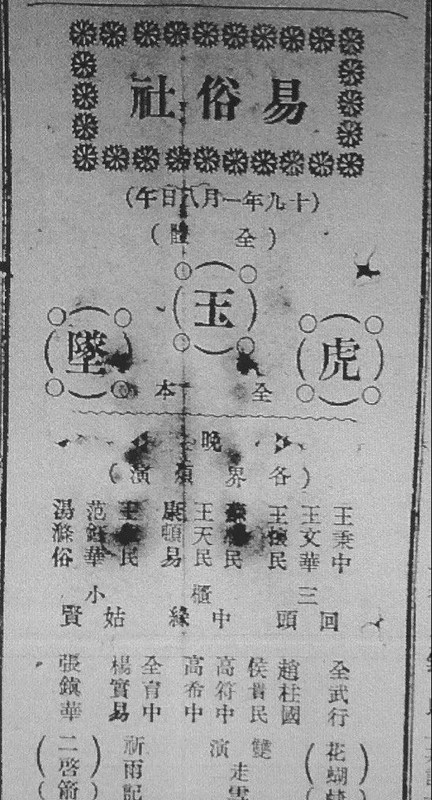 易俗社
(十九年一月八日午)
(全體)
虎玉墜
全本
晚
(各界煩演)
王秉中
王文華
王懷民
民
王天民
康頓易
民
范鈺華
湯滌俗
三回頭
櫃中緣
小姑賢
全武行
趙桂國
侯貴民
高符中
高希中
全育中
楊實易
張鎮華
(花蝴
雙演走雪
祈雨記
(二啓箭)